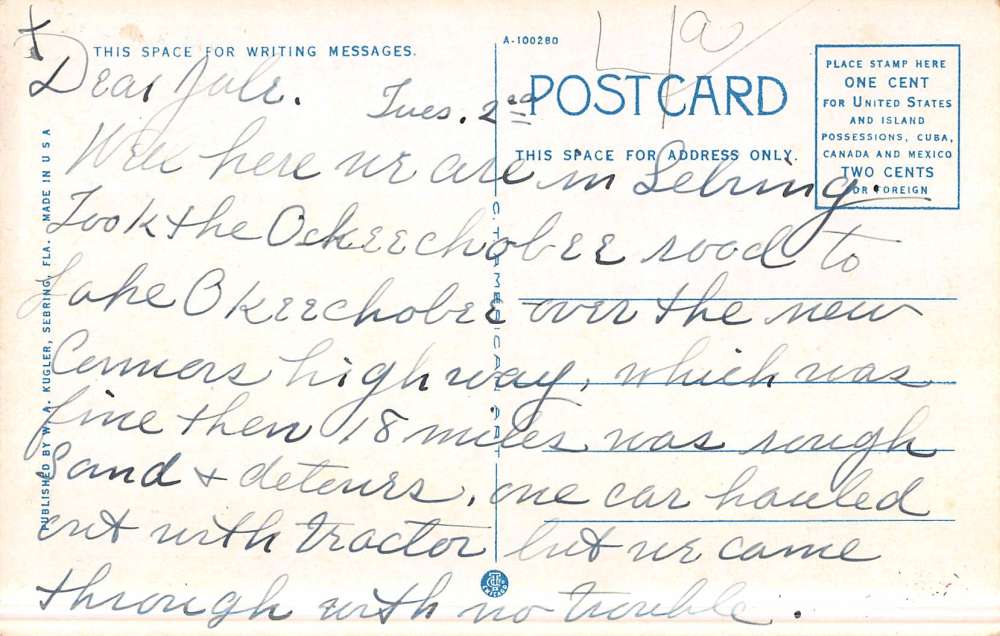 THIS SPACE FOR WRITING MESSAGES.
A-100280
POST CARD
THIS SPACE FOR ADDRESS ONLY.
PLACE STAMP HERE
ONE CENT
FOR UNITED STATES
AND ISLAND
POSSESSIONS, CUBA,
CANADA AND MEXICO
TWO CENTS
FOR FOREIGN
PUBLISHED BY W. A. KUGLER, SEBRING, FLA. MADE IN U S A
C. T. AMERICAN ART
Dear
Tues. 2nd
Well here we are in Sebring.
Took the Ockeechobee road to
Lake Okeechobee over the new
Conners highway, which was
fine then 18 miles was rough
Sand + detours, one car hauled
out with tractor but we came
through with no trouble.